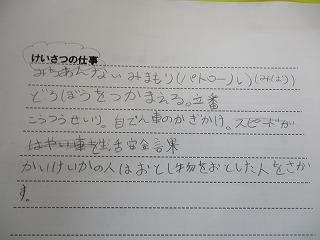 けいさつの仕事
みちあんない みまもり(パトロール)(みはり)
どろぼうをつかまえる。立番
こうつうせいり。自てん車のかぎかけ。スピードが
はやい車を生活安全課
かいけいかの人はおとし物をおとした人をさが
す。